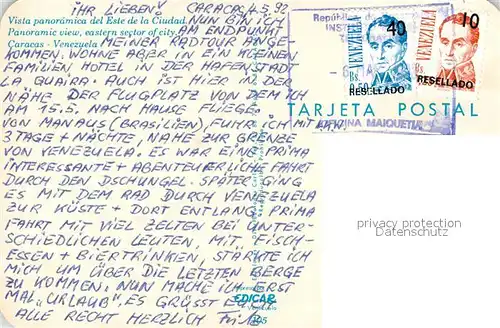 IHR LIEBEN! CARACAS 4.5.92
Vista panorámica del Este de la Ciudad.
NUN BIN ICH
Panoramic view, eastern sector of city.
AM ENDPUNKT
Caracas - Venezuela
MEINER RADTOUR ANGE-
KOMMEN. WOHNE ABER IN EINEM KLEINEN
FAMILIEN HOTEL IN DER HAFENSTADT
LA GUAIRA. AUCH IST HIER IN DER
NÄHE DER FLUGPLATZ VON DEM ICH
AM 15.5. NACH HAUSE FLIEGE.
VON MANAUS (BRASILIEN), FUHR ICH MIT
3 TAGE + NÄCHTE, NAHE ZUR GRENZE
VON VENEZUELA. ES WAR EINE PRIMA
INTERESSANTE + ABENTEUERLICHE FAHRT
DURCH DEN DSCHUNGEL. SPÄTER GING
ES MIT DEM RAD DURCH VENEZUELA
ZUR KÜSTE + DORT ENTLANG. PRIMA
FAHRT MIT VIEL ZELTEN BEI UNTER-
SCHIEDLICHEN LEUTEN. MIT FISCH-
ESSEN + BIERTRINKEN, STÄRKTE ICH
MICH UM ÜBER DIE LETZTEN BERGE
ZU KOMMEN. NUN MACHE ICH ERST
MAL „URLAUB". ES GRÜSST EUCH
ALLE RECHT HERZLICH
EDICAR
40
VENEZUELA
RESELLADO
10
VENEZUELA
RESELLADO
TARJETA POSTAL
MAIQUETIA
privacy protection
Datenschutz